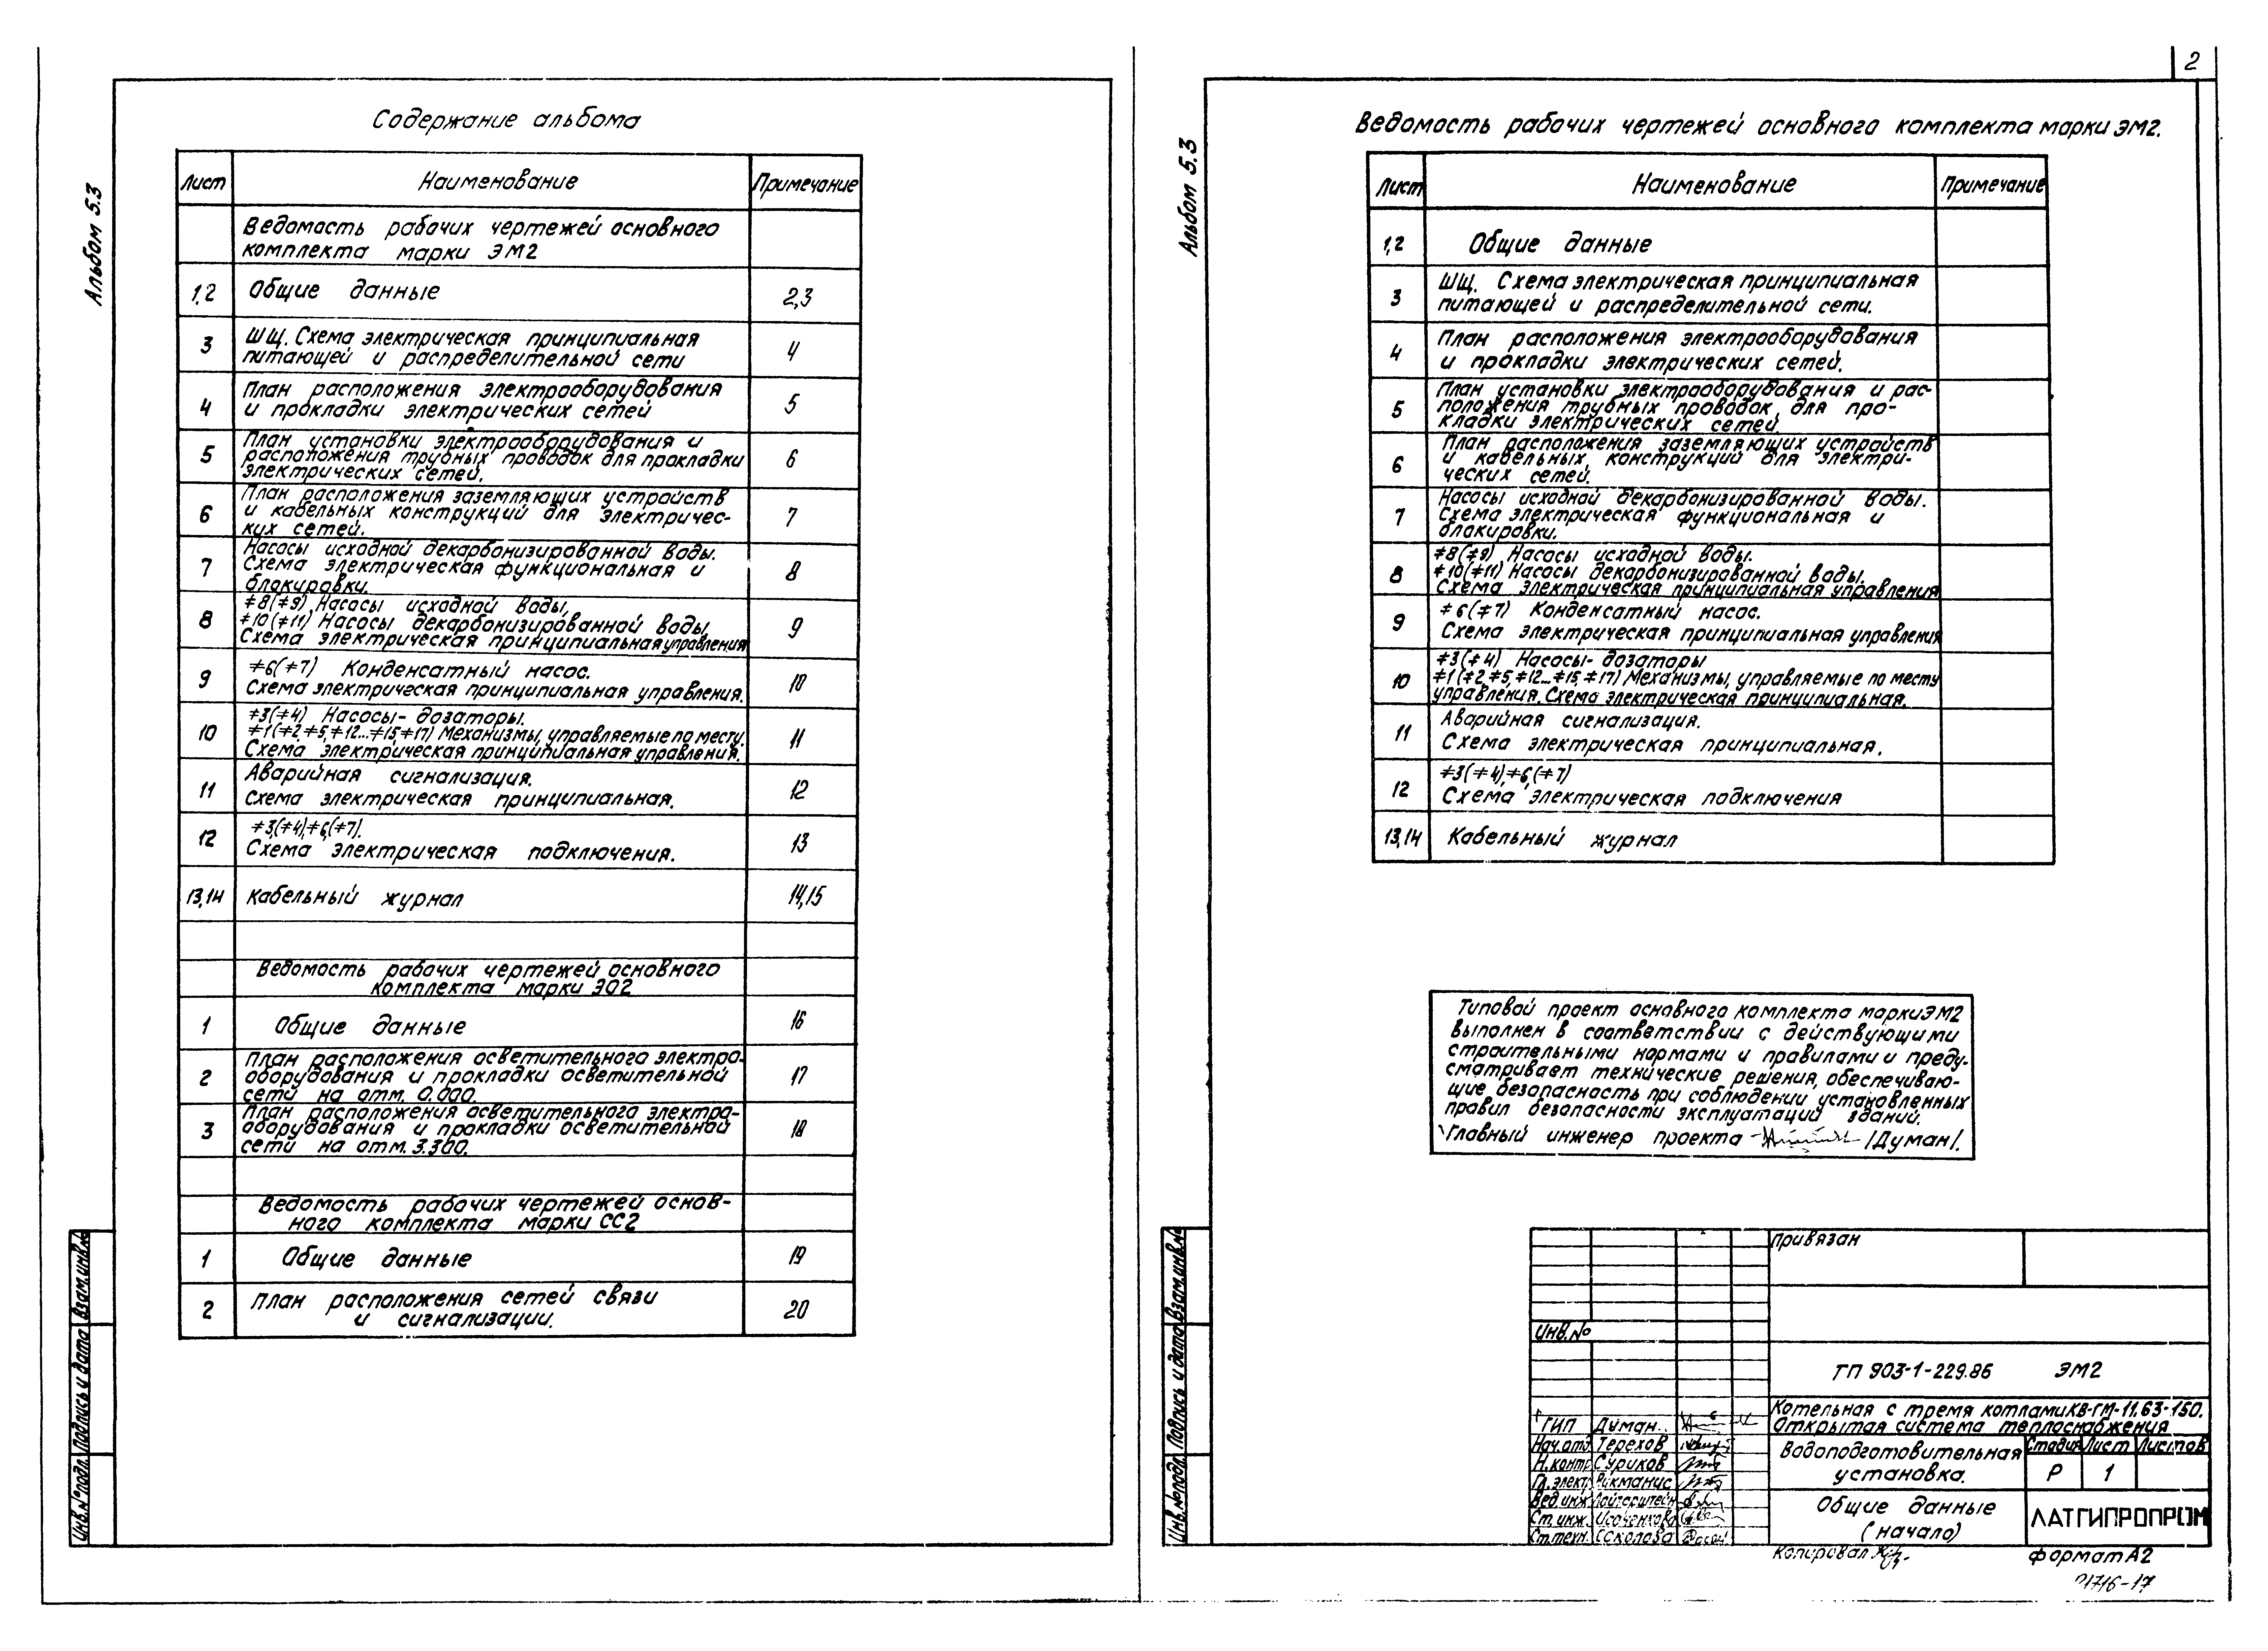 Альбом 5.3
Содержание альбома
Лист Наименование Примечание
Ведомость рабочих чертежей основного
комплекта марки ЭМ2
1,2 Общие данные 2,3
3 ШЩ. Схема электрическая принципиальная
питающей и распределительной сети 4
4 План расположения электрооборудования
и прокладки электрических сетей 5
5 План установки электрооборудования и
расположения трубных проводок для прокладки
электрических сетей. 6
6 План расположения заземляющих устройств
и кабельных конструкций для электричес-
ких сетей. 7
7 Насосы исходной декарбонизированной воды.
Схема электрическая функциональная и
блокировки. 8
8 ≠8(≠9) Насосы исходной воды,
≠10(≠11) Насосы декарбонизированной воды
Схема электрическая принципиальная управления 9
9 ≠6(≠7) Конденсатный насос.
Схема электрическая принципиальная управления. 10
10 ≠3(≠4) Насосы-дозаторы.
≠1(≠2,≠5,≠12...≠15,≠17) Механизмы, управляемые по месту.
Схема электрическая принципиальная управления. 11
11 Аварийная сигнализация.
Схема электрическая принципиальная. 12
12 ≠3(≠4),≠6(≠7).
Схема электрическая подключения. 13
13,14 Кабельный журнал 14,15
Ведомость рабочих чертежей основного
комплекта марки ЭО2
1 Общие данные 16
2 План расположения осветительного электро-
оборудования и прокладки осветительной
сети на отм. 0.000. 17
3 План расположения осветительного электро-
оборудования и прокладки осветительной
сети на отм. 3.300. 18
Ведомость рабочих чертежей основ-
ного комплекта марки СС2
1 Общие данные 19
2 План расположения сетей связи
и сигнализации. 20
Инв.№подл. Подпись и дата Взам.инв.№
2
Альбом 5.3
Ведомость рабочих чертежей основного комплекта марки ЭМ2.
Лист Наименование Примечание
1,2 Общие данные
3 ШЩ. Схема электрическая принципиальная
питающей и распределительной сети.
4 План расположения электрооборудования
и прокладки электрических сетей.
5 План установки электрооборудования и рас-
положения трубных проводок для про-
кладки электрических сетей.
6 План расположения заземляющих устройств
и кабельных конструкций для электри-
ческих сетей.
7 Насосы исходной декарбонизированной воды.
Схема электрическая функциональная и
блокировки.
8 ≠8(≠9) Насосы исходной воды.
≠10(≠11) Насосы декарбонизированной воды.
Схема электрическая принципиальная управления
9 ≠6(≠7) Конденсатный насос.
Схема электрическая принципиальная управления
10 ≠3(≠4) Насосы-дозаторы
≠1(≠2,≠5,≠12...≠15,≠17) Механизмы, управляемые по месту
управления. Схема электрическая принципиальная.
11 Аварийная сигнализация.
Схема электрическая принципиальная.
12 ≠3(≠4),≠6(≠7)
Схема электрическая подключения
13,14 Кабельный журнал
Типовой проект основного комплекта марки ЭМ2
выполнен в соответствии с действующими
строительными нормами и правилами и преду-
сматривает технические решения, обеспечиваю-
щие безопасность при соблюдении установленных
правил безопасности эксплуатаций зданий.
Главный инженер проекта /Думан/.
Инв.№подл. Подпись и дата Взам.инв.№
Привязан
Инв.№
ТП 903-1-229.86 ЭМ2
Котельная с тремя котлами КВ-ГМ-11.63-150.
Открытая система теплоснабжения
ГИП Думан
Нач.отд. Терехов
Н.контр Суриков
Гл.элект Рикманис
Вед.инж.
Ст.инж.
Ст.техн. Соколова
Водоподготовительная
установка.
Стадия Лист Листов
Р 1
Общие данные
(начало)
ЛАТГИПРОПРОМ
Копировал
формат А2
21716-17